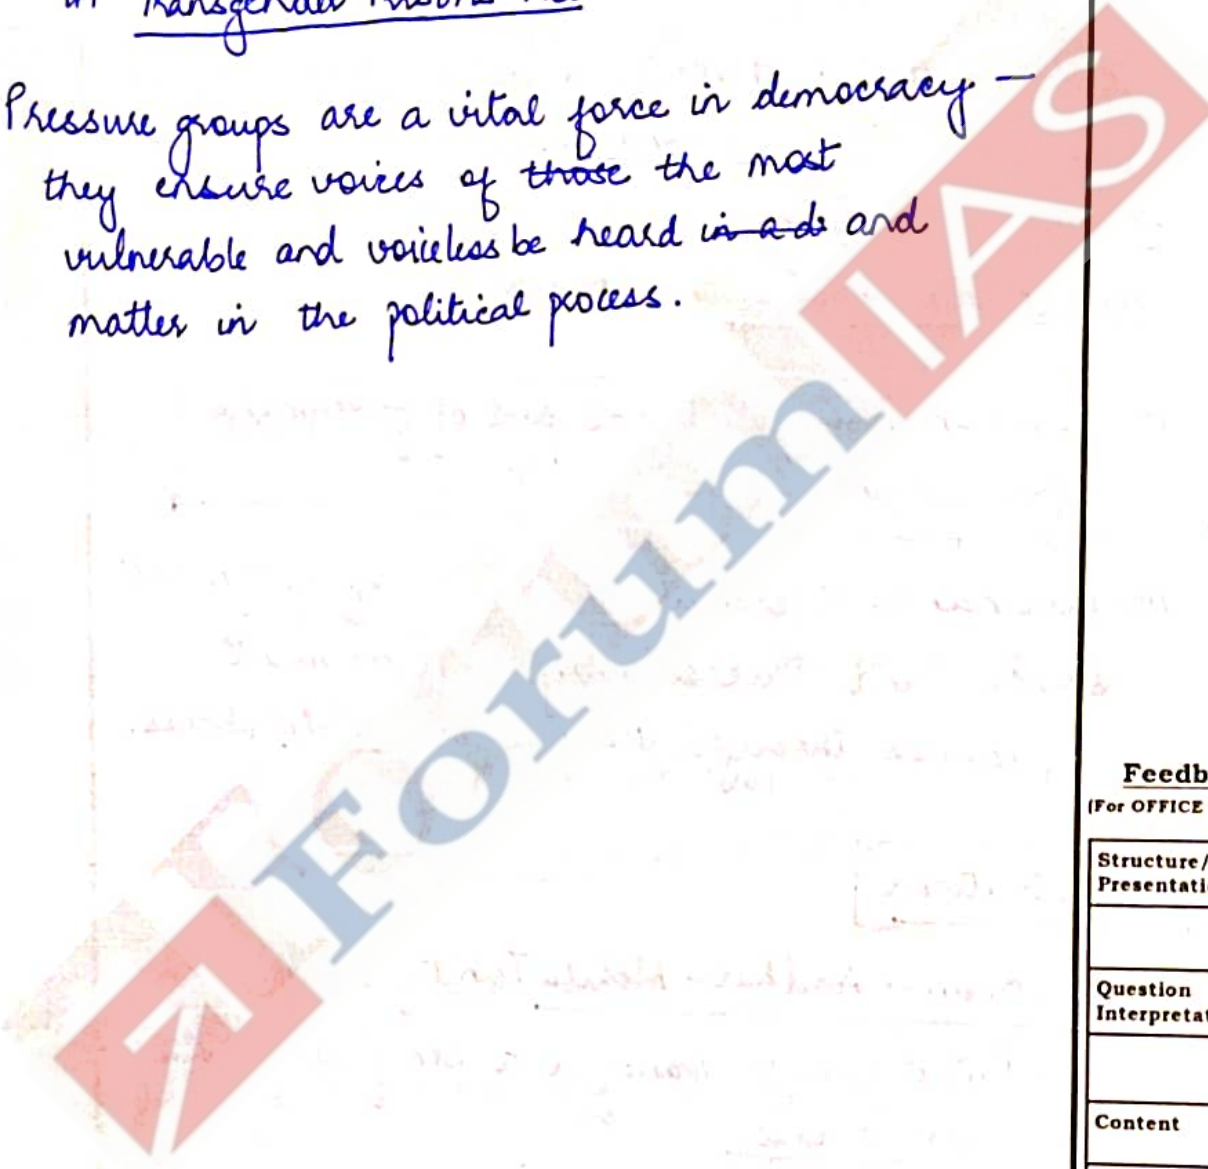 in Transgender
Pressure groups are a vital force in democracy —
they ensure voices of those the most
vulnerable and voiceless be heard in a ds and
matter in the political process.
Forum IAS
Feedb
(For OFFICE
Structure/
Presentati
Question
Interpretat
Content